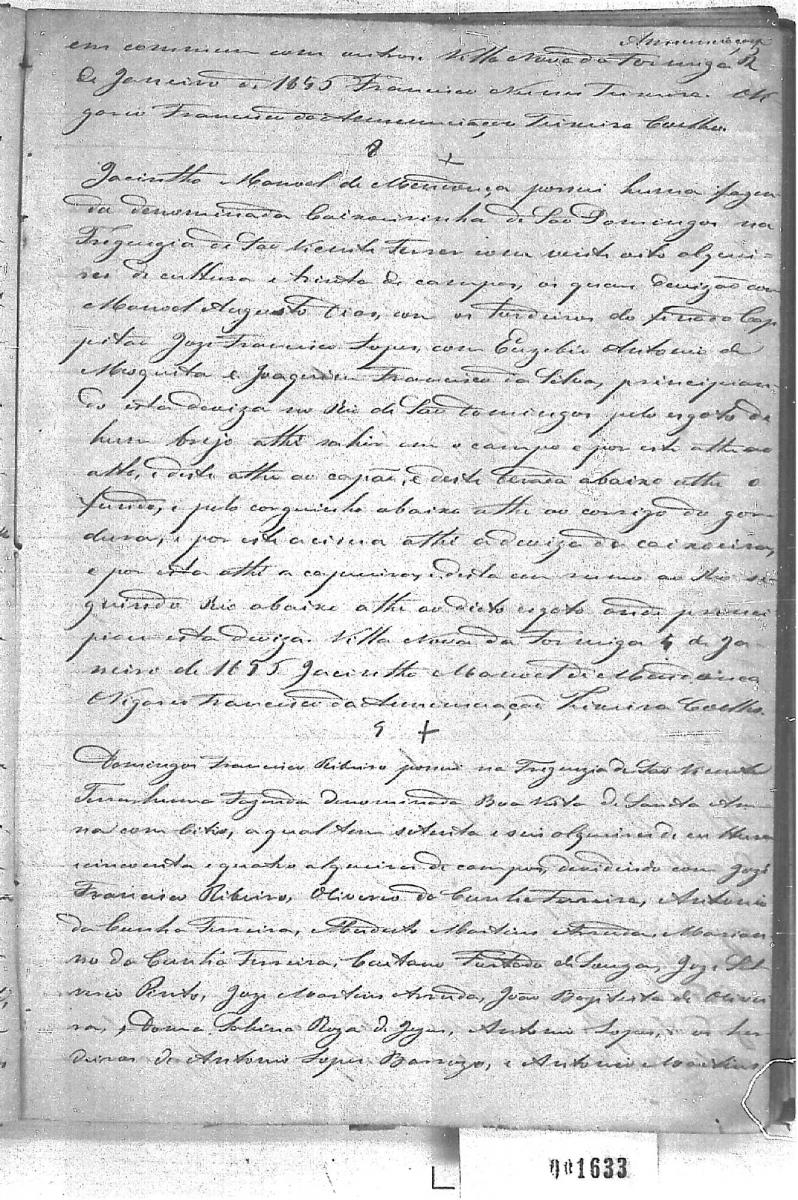 Annunciaçam
em commum com outros. Villa Nova da Formiga 2
de Janeiro de 1855 Francisco Nunes Teixeira. O Vi
gario Francisco da Annunciação Teixeira Coelho.
8 +
Jacintho Manoel de Mendonça possui huma fazen
da denominada Caixoeirinha de São Domingos na
Freguezia de São Vicente Ferrer com vinte oito alquei-
res de cultura e trinta de campos, os quaes devizão com
Manoel Augusto Dias, com os herdeiros do finado Cap
pitão Joze Francisco Lopes, com Euzebio Antonio de
Mesquita e Joaquim Francisco da Silva, principian-
do esta deviza no Rio de São Domingos pelo esgoto de
hum brejo athe sahir em o campo e por este athe ao
alto, e deste athe ao capão, e deste abaixo athe o
fundo, e pelo corguinho abaixo athe ao corrigo da gor
dura, e por este acima athe a deviza da caixoeira,
e por esta athe a capueira, e desta em rumo ao Rio se
guindo Rio abaixo athe ao dicto esgoto onde princi
piou esta deviza. Villa Nova da Formiga 4 de Ja-
neiro de 1855 Jacintho Manoel de Mendonça
O Vigario Francisco da Annunciação Teixeira Coelho.
9 +
Domingos Francisco Ribeiro possui na Freguezia de São Vicente
Ferrer huma Fazenda denominada Boa Vista de Sancta An-
na com, a qual tem setenta e seis alqueires de cultura
e cincoenta e quatro alqueires de campos, devidindo com Joze
Francisco Ribeiro, Oliverio da Cunha Ferreira, Antonio
da Cunha Ferreira, Modesto Martins Arruda, Marian
no da Cunha Ferreira, Caetano Furtado de Souza, Joze Sil
verio Pinto, Joze Martins Arruda, João Baptista de Olivei
ra, e Donna Sabina Roza de Jezus, Antonio Lopes, e os her
deiros de Antonio Lopes, e Antonio Martins
001633